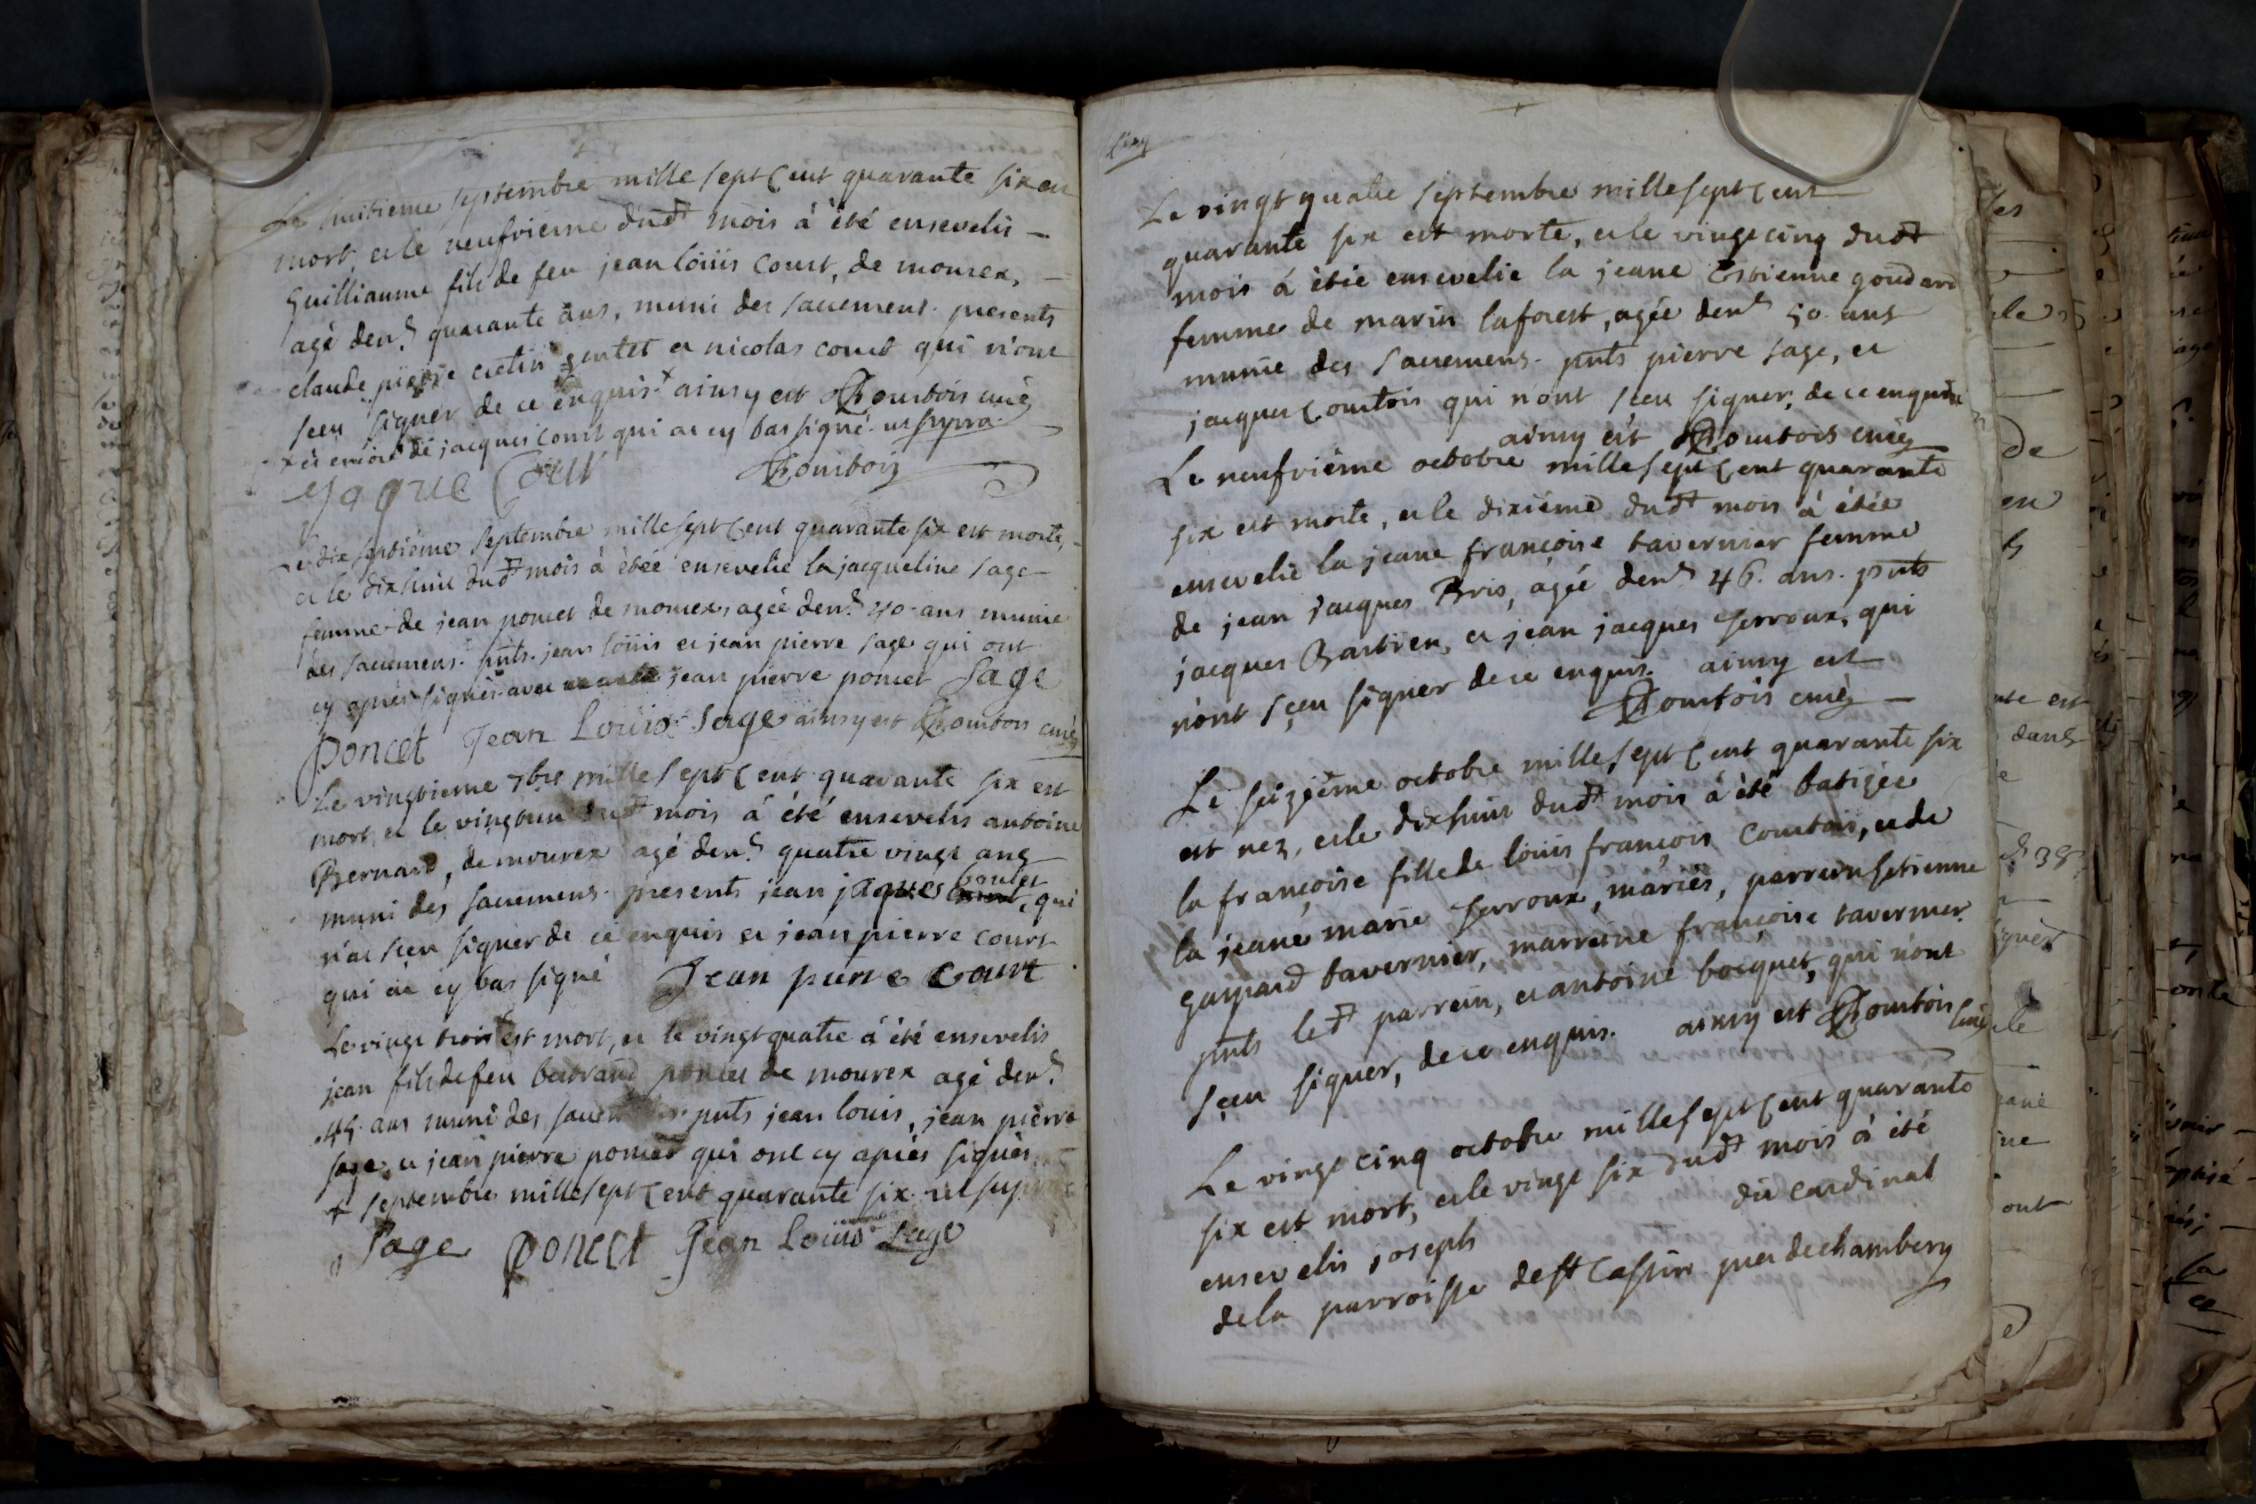 Le huitieme septembre mille sept Cent quarante six est
mort, et le neufvieme dud.t mois à été ensevelis
Guilliaume fils de feu jean loüis Court, de mourex,
agé denv. quarante ans, muni des sacremens. presents
claude pierre et nicolas court qui n'ont
sceu signer de ce enquis + ainsy est Courtois curé
+ et encore de jacques Court qui at cy bas signé. ut supra.
Courtois
Le dix septiéme septembre mille sept Cent quarante six est morte,
et le dix huit dud.t mois à étée ensevelie la jacqueline sage
femme de jean poncet de mourex, agée denv. 40. ans munie
des sacremens. pnts. jean loüis et jean pierre sage qui ont
cy apres signés avec jean pierre poncet Sage
Poncet Jean Louis Sage ainsy est Courtois curé
Le vingtieme 7bre mille sept Cent quarante six est
mort, et le vingtun dud.t mois à été ensevelis antoine
Bernard, de mourex agé denv. quatre vingt ans
muni des sacremens. presents jean jaques poncet, qui
n'at sceu signer de ce enquis et jean pierre court
qui at cy bas signé Jean pierre Court
Le vingt trois + est mort, et le vingt quatre à été ensevelis
jean fils de feu bertrand poncet de mourex agé denv.
45. ans muni des sacremens pnts jean louis, jean pierre
sage, et jean pierre poncet qui ont cy aprés signés
+ septembre mille sept Cent quarante six. ut supra
Sage Poncet Jean Louis Sage
Le vingt quatre septembre mille sept Cent
quarante six est morte, et le vingt cinq dud.t
mois á étée ensevelie la jeane Estienne goudard
femme de marin laforest, agée denv. 50. ans
munie des sacremens. pnts pierre sage, et
jacques Courtois qui n'ont sceu signer, de ce enquis
ainsy est Courtois curé
Le neufviéme octobre mille sept Cent quarante
six est morte, et le dixiéme dud.t mois à étée
ensevelie la jeane françoise tavernier femme
de jean jacques Bris, agée denv. 46. ans. pnts
jacques Bastien, et jean jacques ferroux, qui
n'ont sçeu signer de ce enquis. ainsy est
Courtois curé
Le seiziéme octobre mille sept Cent quarante six
est nez, et le dixhuit dud.t mois à été batizée
la françoise fille de loüis françois Courtois, et de
la jeane marie ferroux, mariés, parrein hetienne
gaspard tavernier, marreine françoise tavernier
pnts le d.t parrein, et antoine bocquet, qui n'ont
sçeu signer, de ce enquis. ainsy est Courtois Curé
Le vingt cinq octobre mille sept Cent quarante
six est mort, et le vingt six dud.t mois à été
ensevelis joseph dit cardinal
de la parroisse de st Cassin pres de chambery